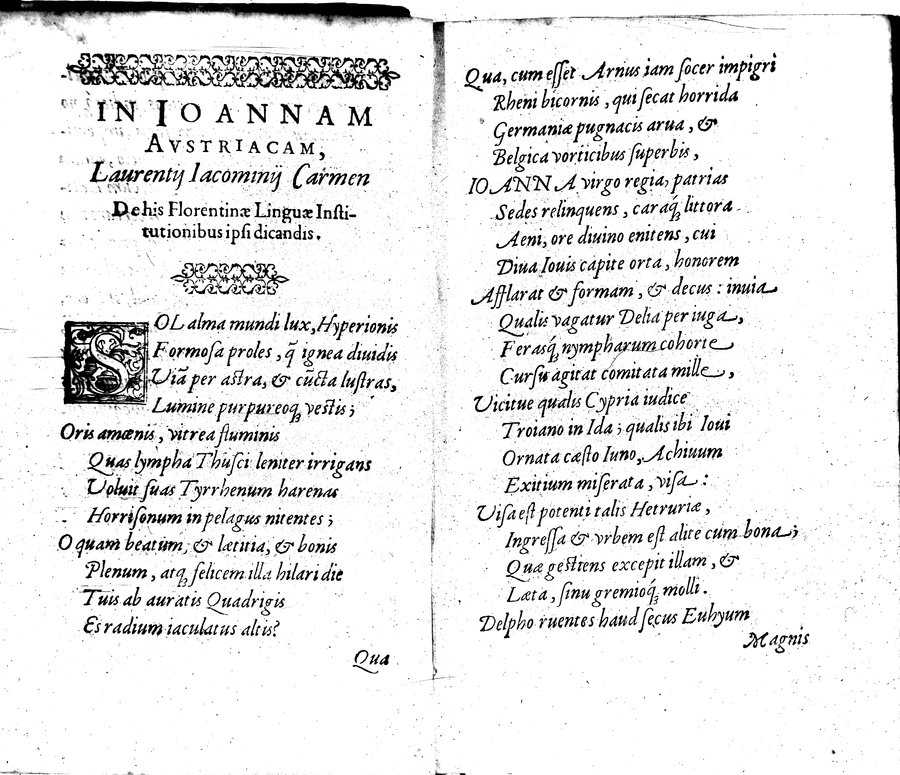 IN IOANNAM
AVSTRIACAM,
Laurentij Iacominij Carmen
De his Florentinæ Linguæ Insti-
tutionibus ipsi dicandis.
SOL alma mundi lux, Hyperionis
Formosa proles, q̃ ignea diuidis
Viã per astra, & cũcta lustras,
Lumine purpureoq́; vestis;
Oris amœnis, vitrea fluminis
Quas lympha Thusci leniter irrigans
Voluit suas Tyrrhenum harenas
Horrisonum in pelagus nitentes;
O quam beatum, & lætitia, & bonis
Plenum, atq; felicem illa hilari die
Tuis ab auratis Quadrigis
Es radium iaculatus altis?
Qua
Qua, cum esset Arnus iam socer impigri
Rheni bicornis, qui secat horrida
Germaniæ pugnacis arua, &
Belgica vorticibus superbis,
IOANNA virgo regia, patrias
Sedes relinquens, caraq́; littora
Aeni, ore diuino enitens, cui
Diua Iouis capite orta, honorem
Afflarat & formam, & decus: inuia
Qualis vagatur Delia per iuga,
Ferasq́; nympharum cohorte
Cursu agitat comitata mille,
Vicitue qualis Cypria iudice
Troiano in Ida; qualis ibi Ioui
Ornata cæsto Iuno, Achiuum
Exitium miserata, visa:
Visa est potenti talis Hetruriæ,
Ingressa & vrbem est alite cum bona;
Quæ gestiens excepit illam, &
Læta, sinu gremioq́; molli.
Delpho ruentes haud secus Euhyum
Magnis